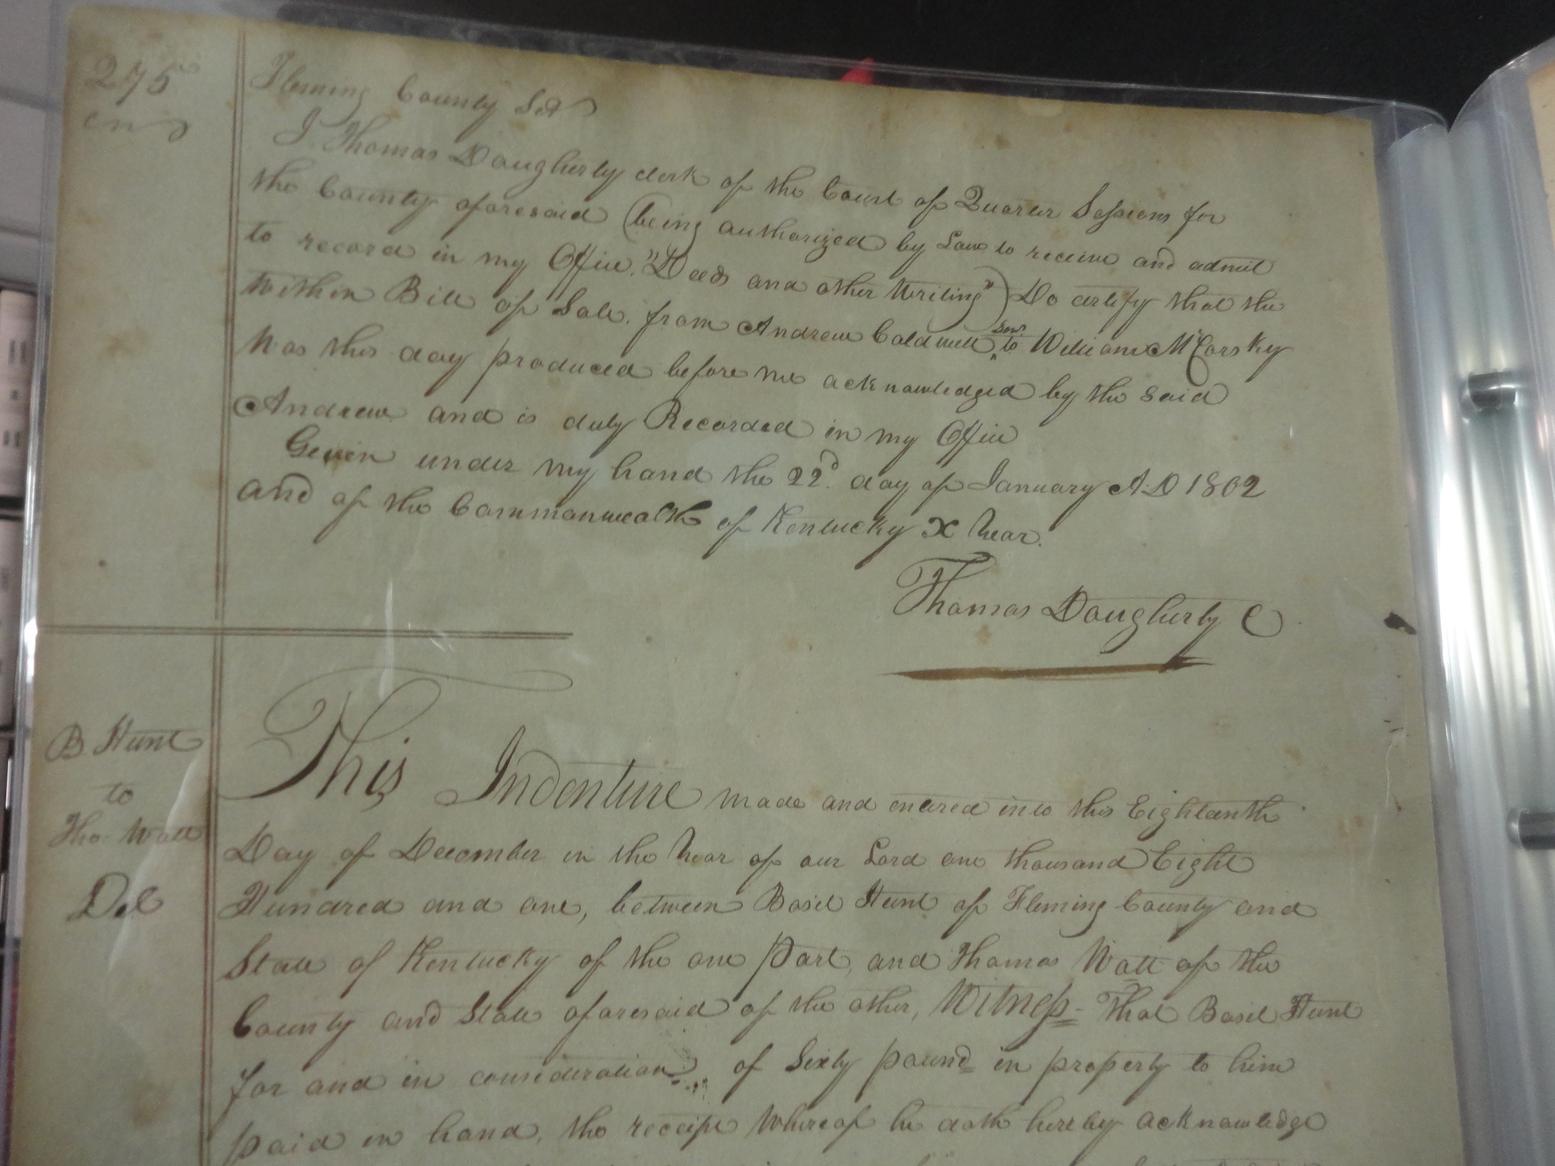 275
Fleming County Sct
I Thomas Daugherty clerk of the Court of Quarter Sessions for
the County aforesaid (being authorized by Law to receive and admit
to record in my Office, "Deeds and other Writing") Do certify that the
within Bill of Sale from Andrew Caldwell Senr. to William McCorsky
Was this day produced before me acknowledged by the said
Andrew and is duly Recorded in my Office
Given under my hand the 22d. day of January A.D 1802
and of the Commonwealth of Kentucky X Year.
Thomas Daugherty C
B Hunt
to
Tho. Watt
Del
This Indenture made and entered into this Eighteenth
Day of December in the Year of our Lord one thousand Eight
Hundred and one, between Basil Hunt of Fleming County and
State of Kentucky of the one Part, and Thomas Watt of the
County and State aforesaid of the other, Witness- That Basil Hunt
for and in consideration of Sixty pound in property to him
paid in hand, the receipt Whereof he doth hereby acknowledge